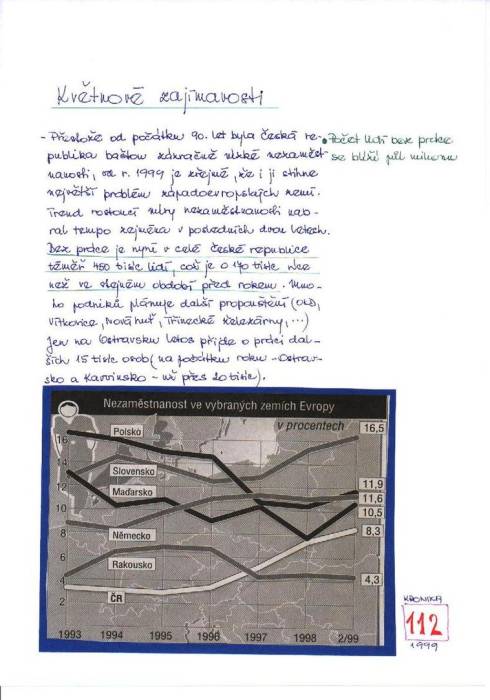 Květnové zajímavosti
- Přestože od počátku 90. let byla česká re-
publika baštou zázračně nízké nezaměst-
nanosti, od r. 1999 je zřejmé, že i ji stihne
největší problém západoevropských zemí.
Trend rostoucí míry nezaměstnanosti nab-
ral tempo zejména v posledních dvou letech.
Bez práce je nyní v celé České republice
téměř 450 tisíc lidí, což je o 170 tisíc více
než ve stejném období před rokem. Mno-
ho podniků plánuje další propouštění (OKD,
Vítkovice, Nová huť, Třinecké železárny,...)
Jen na Ostravsku letos přijde o práci dal-
ších 15 tisíc osob (na počátku roku - Ostrav-
sko a Karvinsko - už přes 20 tisíc).
• Počet lidí bez práce
se blíží půl milionu
Nezaměstnanost ve vybraných zemích Evropy
v procentech
Polsko
Slovensko
Maďarsko
Německo
Rakousko
ČR
16
14
12
10
8
6
4
2
16,5
11,9
11,6
10,5
8,3
4,3
1993 1994 1995 1996 1997 1998 2/99
KRONIKA
112
1999